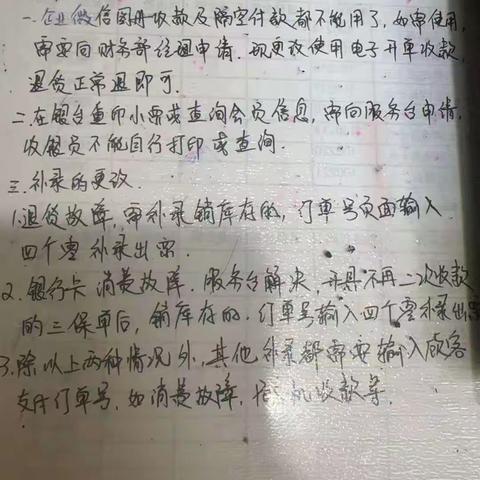 一.企业微信图册收款及隔空付款都不能用了,如需使用,
需要向财务部经理申请.现更改使用电子开单收款,
退货正常退即可.
二.在银台重印小票或查询会员信息,需向服务台申请,
收银员不能自行打印或查询.
三.补录的更改.
1.退货故障,需补录销库存的,订单号页面输入
四个零补录出票.
2.银行卡消费故障.服务台解决,开具不再二次收款
的三保单后,销库存的.订单号输入四个零补录出票
3.除以上两种情况外,其他补录都需要输入顾客
支付订单号,如消费故障,机收款等.